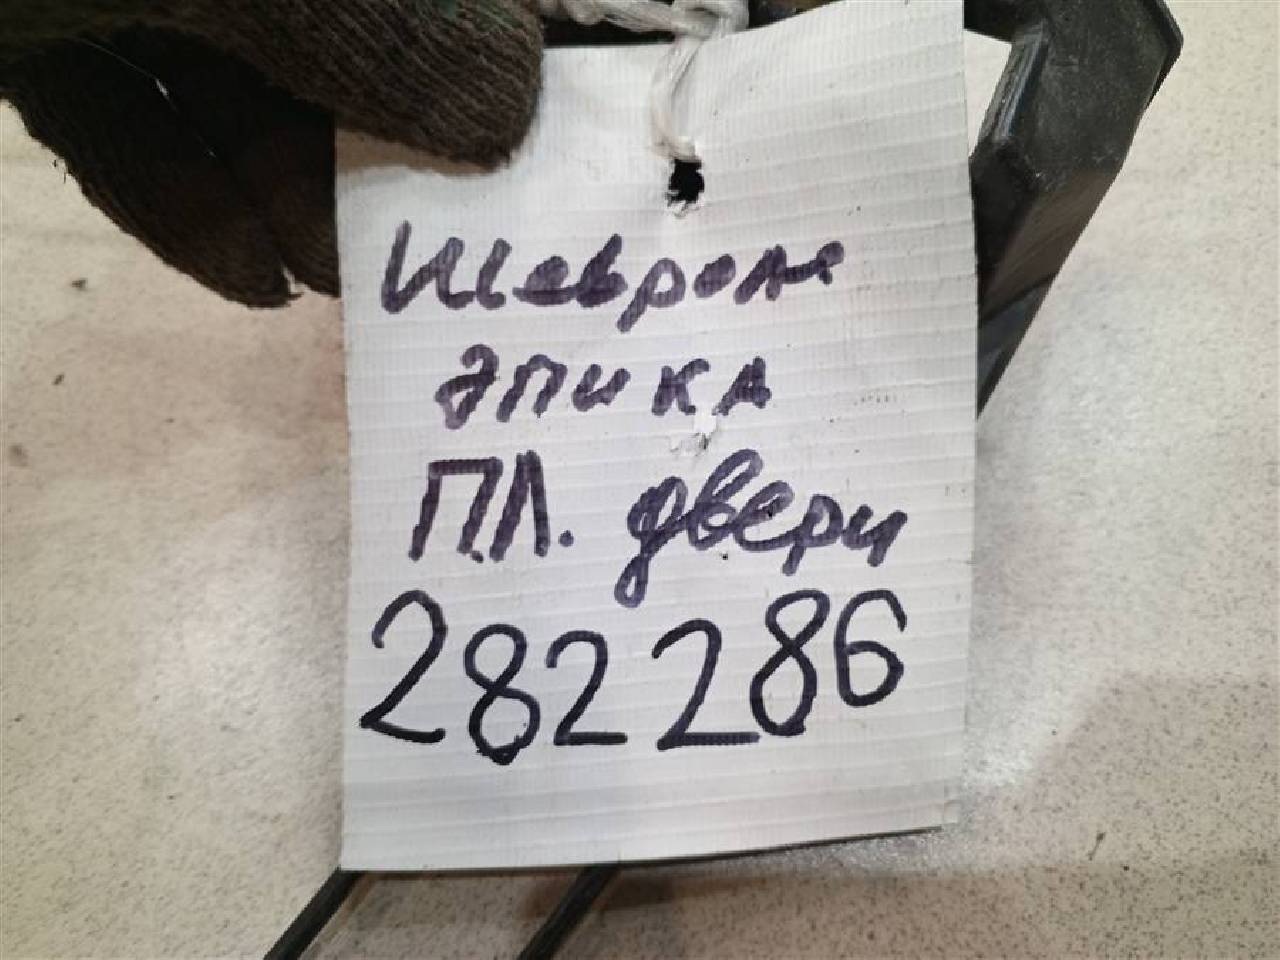 Шевроле
эпика
ПЛ. двери
282286